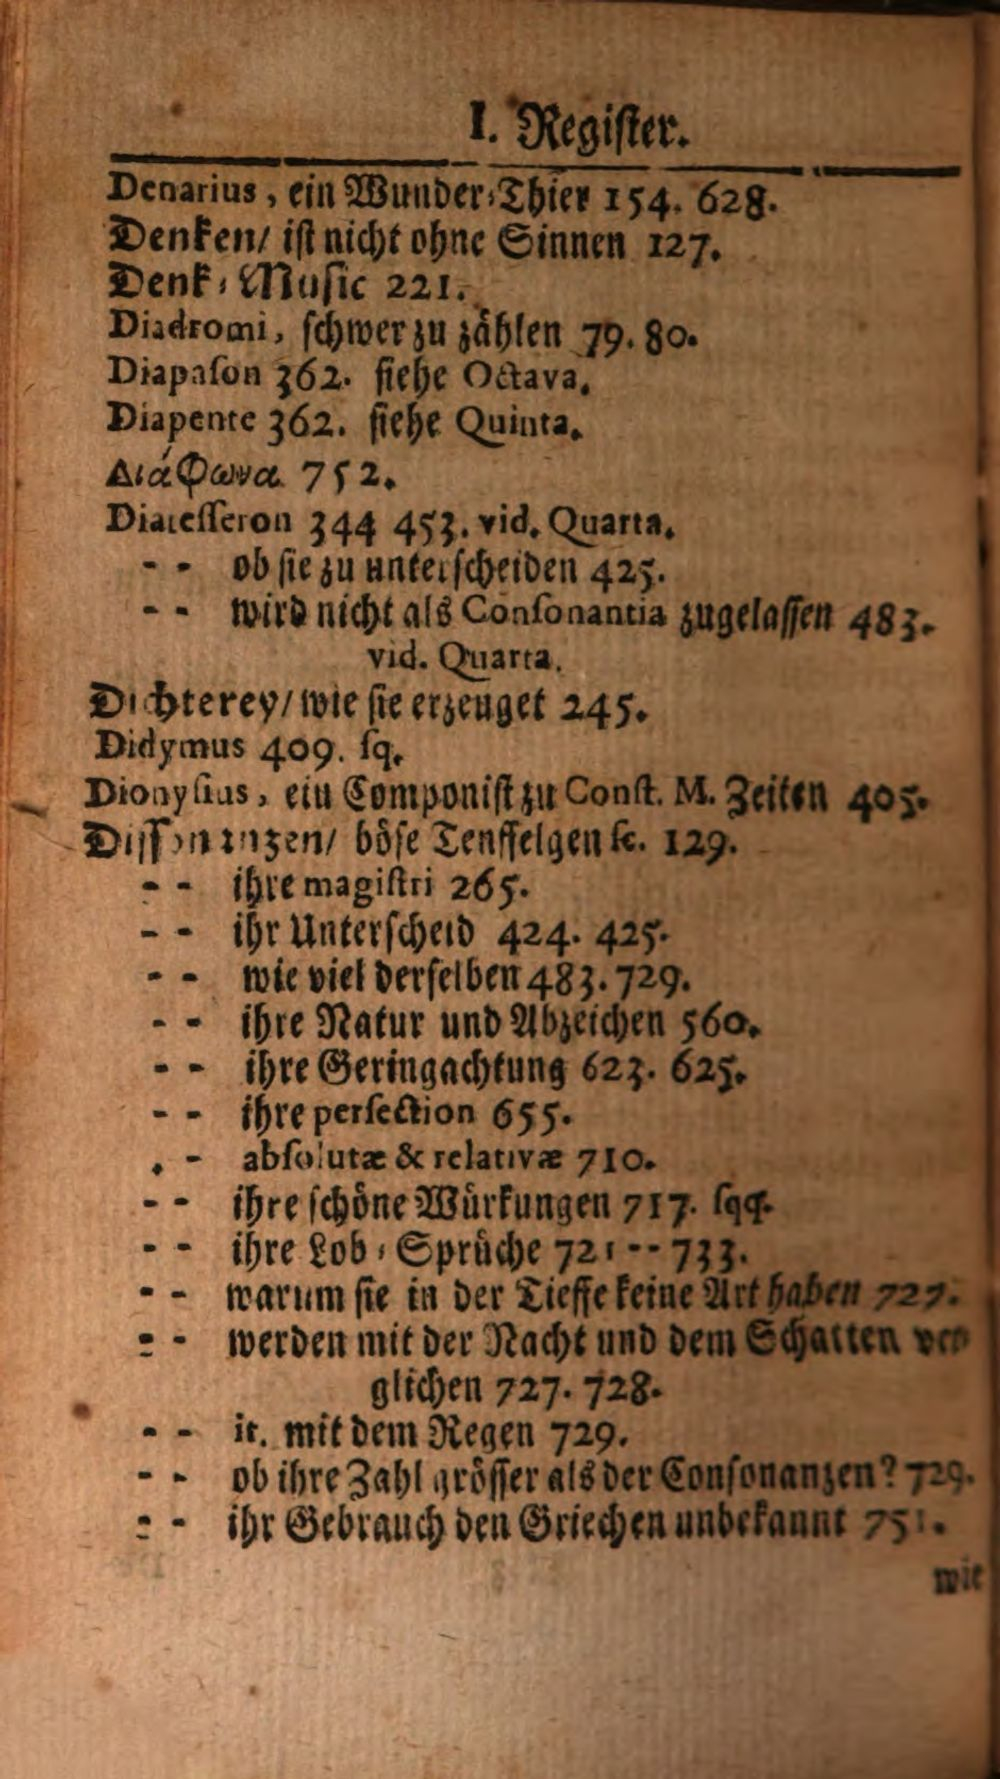 I. Register.
Denarius, ein Wunder-Thier 154. 628.
Denken/ ist nicht ohne Sinnen 127.
Denk-Music 221.
Diadromi, schwer zu zählen 79. 80.
Diapason 362. siehe Octava.
Diapente 362. siehe Quinta.
Διάφωνα 752.
Diatesseron 344 453. vid. Quarta.
- - ob sie zu unterscheiden 425.
- - wird nicht als Consonantia zugelassen 483.
vid. Quarta.
Dichterey/ wie sie erzeuget 245.
Didymus 409. sq.
Dionysius, ein Componist zu Const. M. Zeiten 405.
Dissonanzen/ böse Teuffelgen sc. 129.
- - ihre magistri 265.
- - ihr Unterscheid 424. 425.
- - wie viel derselben 483. 729.
- - ihre Natur und Abzeichen 560.
- - ihre Geringachtung 623. 625.
- - ihre perfection 655.
- - absolutæ & relativæ 710.
- - ihre schöne Würkungen 717. sqq.
- - ihre Lob-Sprüche 721 -- 733.
- - warum sie in der Tieffe keine Art haben 727.
- - werden mit der Nacht und dem Schatten ver
glichen 727. 728.
- - it. mit dem Regen 729.
- - ob ihre Zahl grösser als der Consonanzen? 729.
- - ihr Gebrauch den Griechen unbekannt 751.
wie